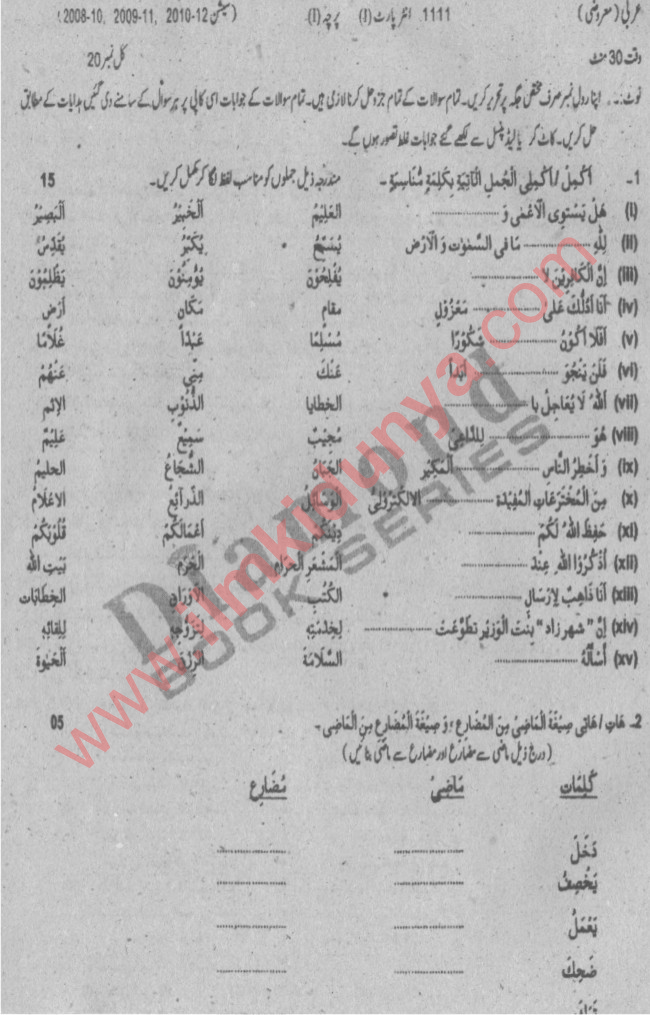 عربی (معروضی) 1111 انٹر پارٹ (I) پرچہ (I) (سیشن 12-2010, 11-2009, 10-2008)
وقت 30 منٹ کل نمبر 20
نوٹ:۔ اپنا رول نمبر صرف مختص جگہ پر تحریر کریں۔ تمام سوالات کے تمام جزو حل کرنا لازمی ہیں۔ تمام سوالات کے جوابات اسی کاپی پر ہر سوال کے سامنے دی گئیں ہدایات کے مطابق
حل کریں۔ کاٹ کر یا لیڈ پنسل سے لکھے گئے جوابات غلط تصور ہوں گے۔
1- أَكْمِلْ / أَكْمِلِی الْجُملِ الْآتِيَةِ بِكَلِمَةٍ مُّنَاسِبَةٍ - مندرجہ ذیل جملوں کو مناسب لفظ لگا کر مکمل کریں۔ 15
(i) هَلْ يَسْتَوِى الْاَعْمٰى وَ ............ العَلِيْمُ الْخَبِيْرُ الْبَصِيْرُ
(ii) لِلّٰهِ ............ مَا فِى السَّمٰوٰتِ وَ الْاَرْضِ يُسَبِّحُ يُكَبِّرُ يُقَدِّسُ
(iii) اِنَّ الْكَافِرِيْنَ لَا ............ يُفْلِحُوْنَ يُؤْمِنُوْنَ يَظْلِمُوْنَ
(iv) اَنَا اَدُلُّكَ عَلٰى ............ مَعْزُوْلٍ مقام مَكَان اَرْض
(v) اَفَلَا اَكُوْنُ ............ شَكُوْرًا مُسْلِمًا عَبْداً غُلَامًا
(vi) فَلَنْ يَنْجُوَ ............ اَبَداً عَنْكَ مِنِّى عَنْهُمْ
(vii) اَللّٰهُ لَا يُعَاجِلُ بِا ............ الخطايا الذُّنُوْبِ الإثم
(viii) هُوَ ............ لِلدَّاعِىْ مُجِيْبٌ سَمِيْع عَلِيْمٌ
(ix) وَ اَخْطِرُ النَّاس ............ اَلْمَكِيْر الْجَبَانُ الشُّجَاعُ الحليم
(x) مِنَ الْمُخْتَرِعَاتِ الْمُفِيْدَةِ ............ الالكترولیْ الْوَسَائِلُ الذَّرَائِعُ الاعْلَام
(xi) حَفِظَ اللّٰهُ لَكُمْ ............ دِيْنَكُمْ اَعْمَالَكُمْ قُلُوْبَكُمْ
(xii) اُذْكُرُوْا اللّٰهَ عِنْدَ ............ الْمَشْعَرِ الْحَرَامِ الْحَرَمِ بَيْتِ اللّٰه
(xiii) اَنَا ذَاهِبٌ لِاِرْسَالِ ............ الْكُتُبِ الاَوْرَاقِ الخطابات
(xiv) اِنَّ "شهر زاد" بِنْتَ الْوَزِيْرِ تَطَوَّعَتْ ............ لِخِدْمَتِهٖ لِتَزَوُّجِهٖ لِلِقَائِهٖ
(xv) اَسْأَلُهُ ............ السَّلَامَةَ الرِّزْقَ الْحَيٰوةَ
2- هَاتِ / هَاتِى صِيْغَةَ الْمَاضِىْ مِنَ الْمُضَارِعِ ، وَ صِيْغَةَ الْمُضَارِعِ مِنَ الْمَاضِىْ - 05
(درج ذیل ماضی سے مضارع اور مضارع سے ماضی بنائیں)
كَلِمَات مَاضِىْ مُضَارِع
دَخَلَ ............ ............
يَخْصِفُ ............ ............
يَعْمَلُ ............ ............
ضَحِكَ ............ ............
www.ilmkidunya.com
Diamond
BOOK SERIES